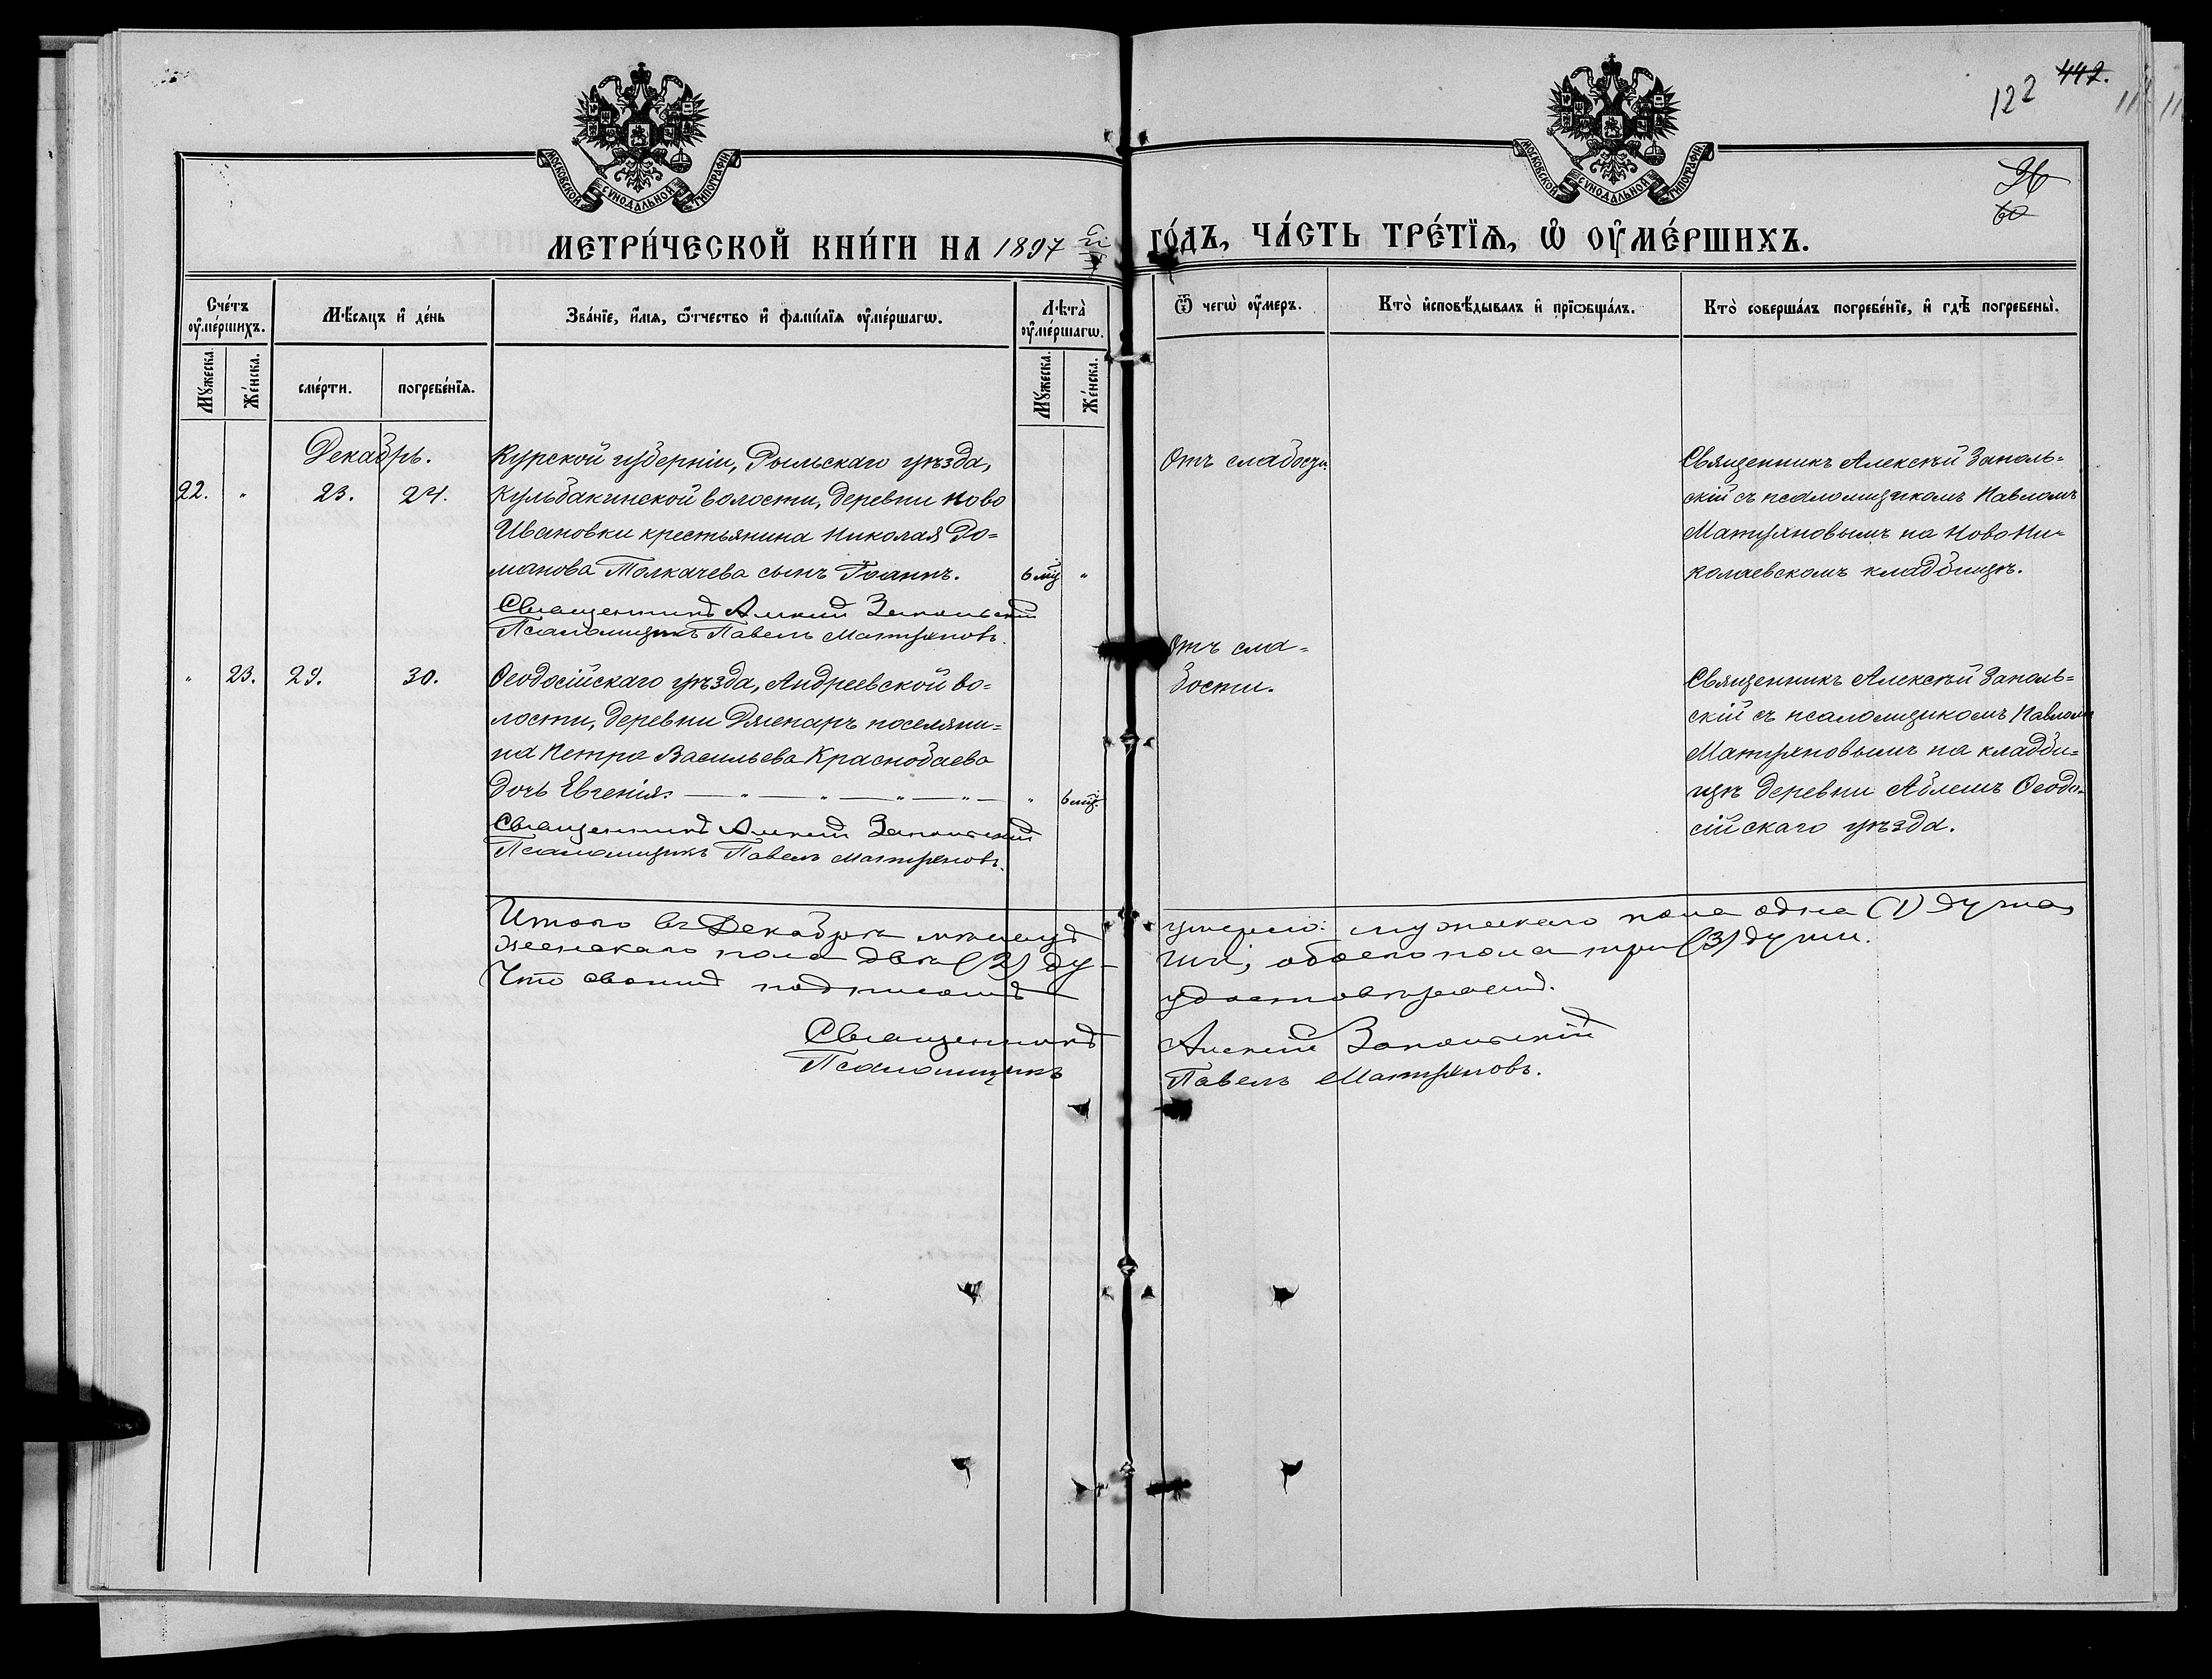 122 442.
26
60
МОСКОВСКОЙ СѴНОДАЛЬНОЙ ТИПОГРАФІИ
МОСКОВСКОЙ СѴНОДАЛЬНОЙ ТИПОГРАФІИ
МЕТРИ́ЧЕСКОЙ КНИ́ГИ НА 1897 й
ГО́ДЪ, ЧА́СТЬ ТРЕ́ТЇѦ, Ѡ҆ ОУ҆МЕ́РШИХЪ.
Сче́тъ оу҆ме́ршихъ.
Мꙋ́жеска.
Же́нска.
Мѣ́сяцъ и҆ де́нь
сме́рти.
погребе́нїѧ.
Зва́нїе, и҆́мѧ, ѻ҆́тчество и҆ фами́лїѧ оу҆ме́ршагѡ.
Лѣта̀ оу҆ме́ршагѡ.
Мꙋ́жеска.
Же́нска.
Ѿ чегѡ̀ оу҆́меръ.
Кто̀ и҆сповѣ́дывалъ и҆ прїѡбща́лъ.
Кто̀ соверша́лъ погребе́нїе, и҆ гдѣ̀ погребены̀.
Декабрь.
22. " 23. 24.
Курской губерніи, Рыльскаго уѣзда,
Кульбакинской волости, деревни Ново
Ивановки крестьянина Николая Ро=
манова Толкачева сынъ Іоаннъ. 6 мц "
Священникъ Алексій Запольскій
Псаломщикъ Павелъ Матуяновъ.
Отъ слабости.
Священникъ Алексѣй Заполь=
скій съ псаломщикомъ Павломъ
Матуяновымъ на Ново Ни=
колаевскомъ кладбищѣ.
" 23. 29. 30.
Ѳеодосійскаго уѣзда, Андреевской во=
лости, деревни поселяни=
на Петра Васильева Краснобаева
дочь Евгенія. — " — " — " — " — " 6 мц.
Священникъ Алексій Запольскій
Псаломщикъ Павелъ Матуяновъ.
Отъ сла=
бости.
Священникъ Алексѣй Заполь=
скій съ псаломщикомъ Павломъ
Матуяновымъ на кладби=
щѣ деревни Аблешъ Ѳеодо=
сійскаго уѣзда.
Итого въ Декабрѣ мѣсяцѣ умерло: мужескаго пола одна (1) душа,
женскаго пола двѣ (2) ду- ши, обоего пола три (3) души.
Что своимъ подписомъ удостовѣряемъ.
Священникъ Алексій Запольскій
Псаломщикъ Павелъ Матуяновъ.